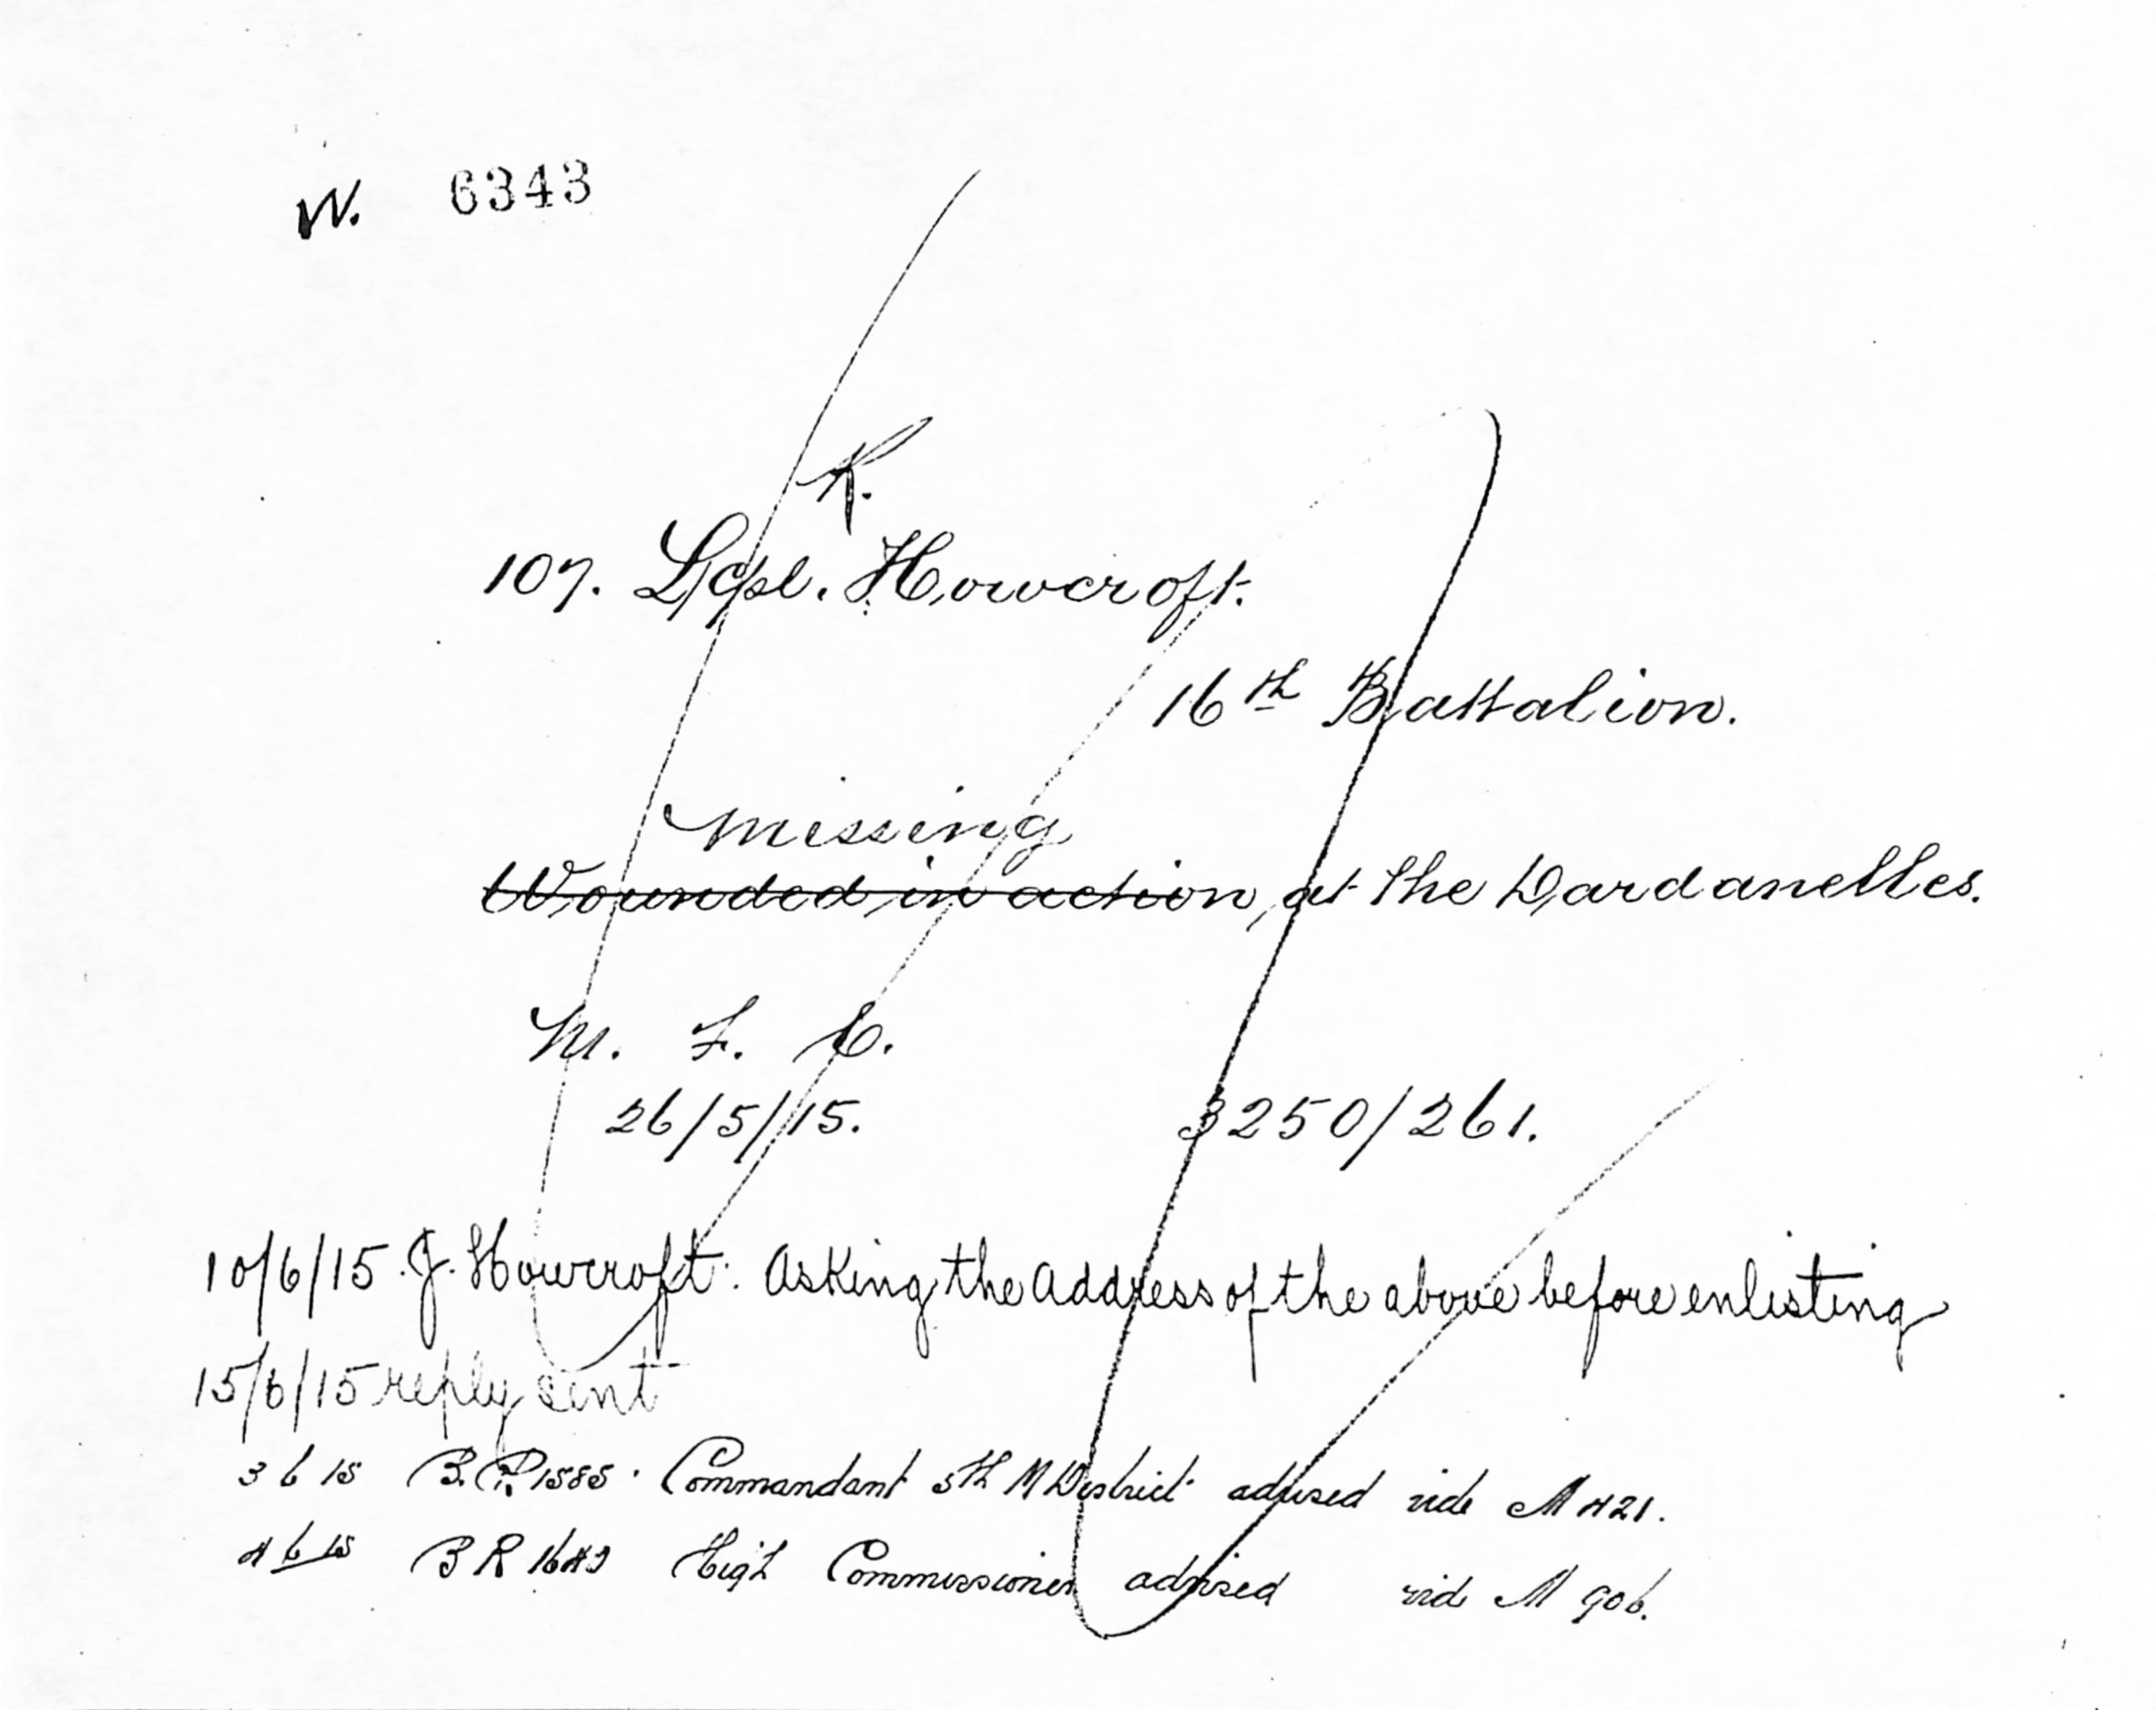 W. 6343
K.
107. L/Cpl. Howcroft.
16th Battalion.
missing
Wounded in action, at the Dardanelles.
M. F. C.
26/5/15. 3250/261.
10/6/15. J. Howcroft. Asking the Address of the above before enlisting
15/6/15 reply sent
3 6 15 B.R. 1585. Commandant 5th M District advised vide M 421.
4 6 15 B R High Commissioner advised vid M 906.